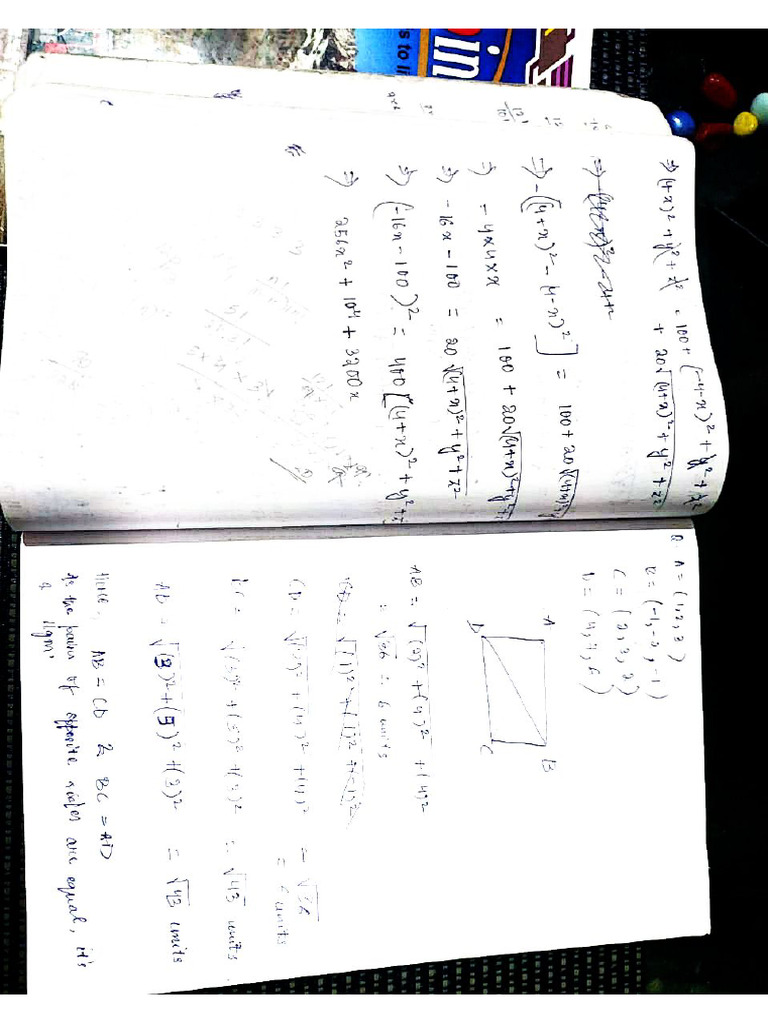 ⇒ (4-x)² + y² + z² = 100 + (-4-x)² + y² + z²
+ 20√(4+x)² + y² + z²
⇒ -[(4+x)² - (4-x)²] = 100 + 20√(4+x)²+y²
⇒ -4×4×x = 100 + 20√(4+x)²+y²+z²
⇒ -16x - 100 = 20√(4+x)² + y² + z²
⇒ (-16x - 100)² = 400[(4+x)² + y² + z²
⇒ 256x² + 10⁴ + 3200x
Q. A = (1,2,3)
B = (-1,-2,-1)
C = (2,3,2)
D = (4,7,6)
A B
D C
AB = √(2)² + (4)² + (4)²
= √36 = 6 units
CD = √(2)² + (4)² + (4)² = √36
= 6 units
BC = √(3)² + (5)² + (3)² = √43 units
AD = √(3)² + (5)² + (3)² = √43 units
Hence, AB = CD & BC = AD
As the pairs of opposite sides are equal, it's
a llgm.
in
s to li